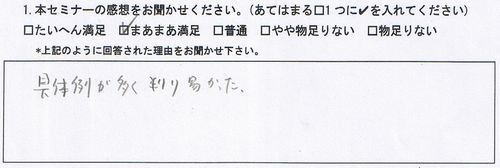 1. 本セミナーの感想をお聞かせください。(あてはまる□1つに✔を入れてください)
□たいへん満足 ☑まあまあ満足 □普通 □やや物足りない □物足りない
*上記のように回答された理由をお聞かせ下さい。
具体例が多く判り易かった。